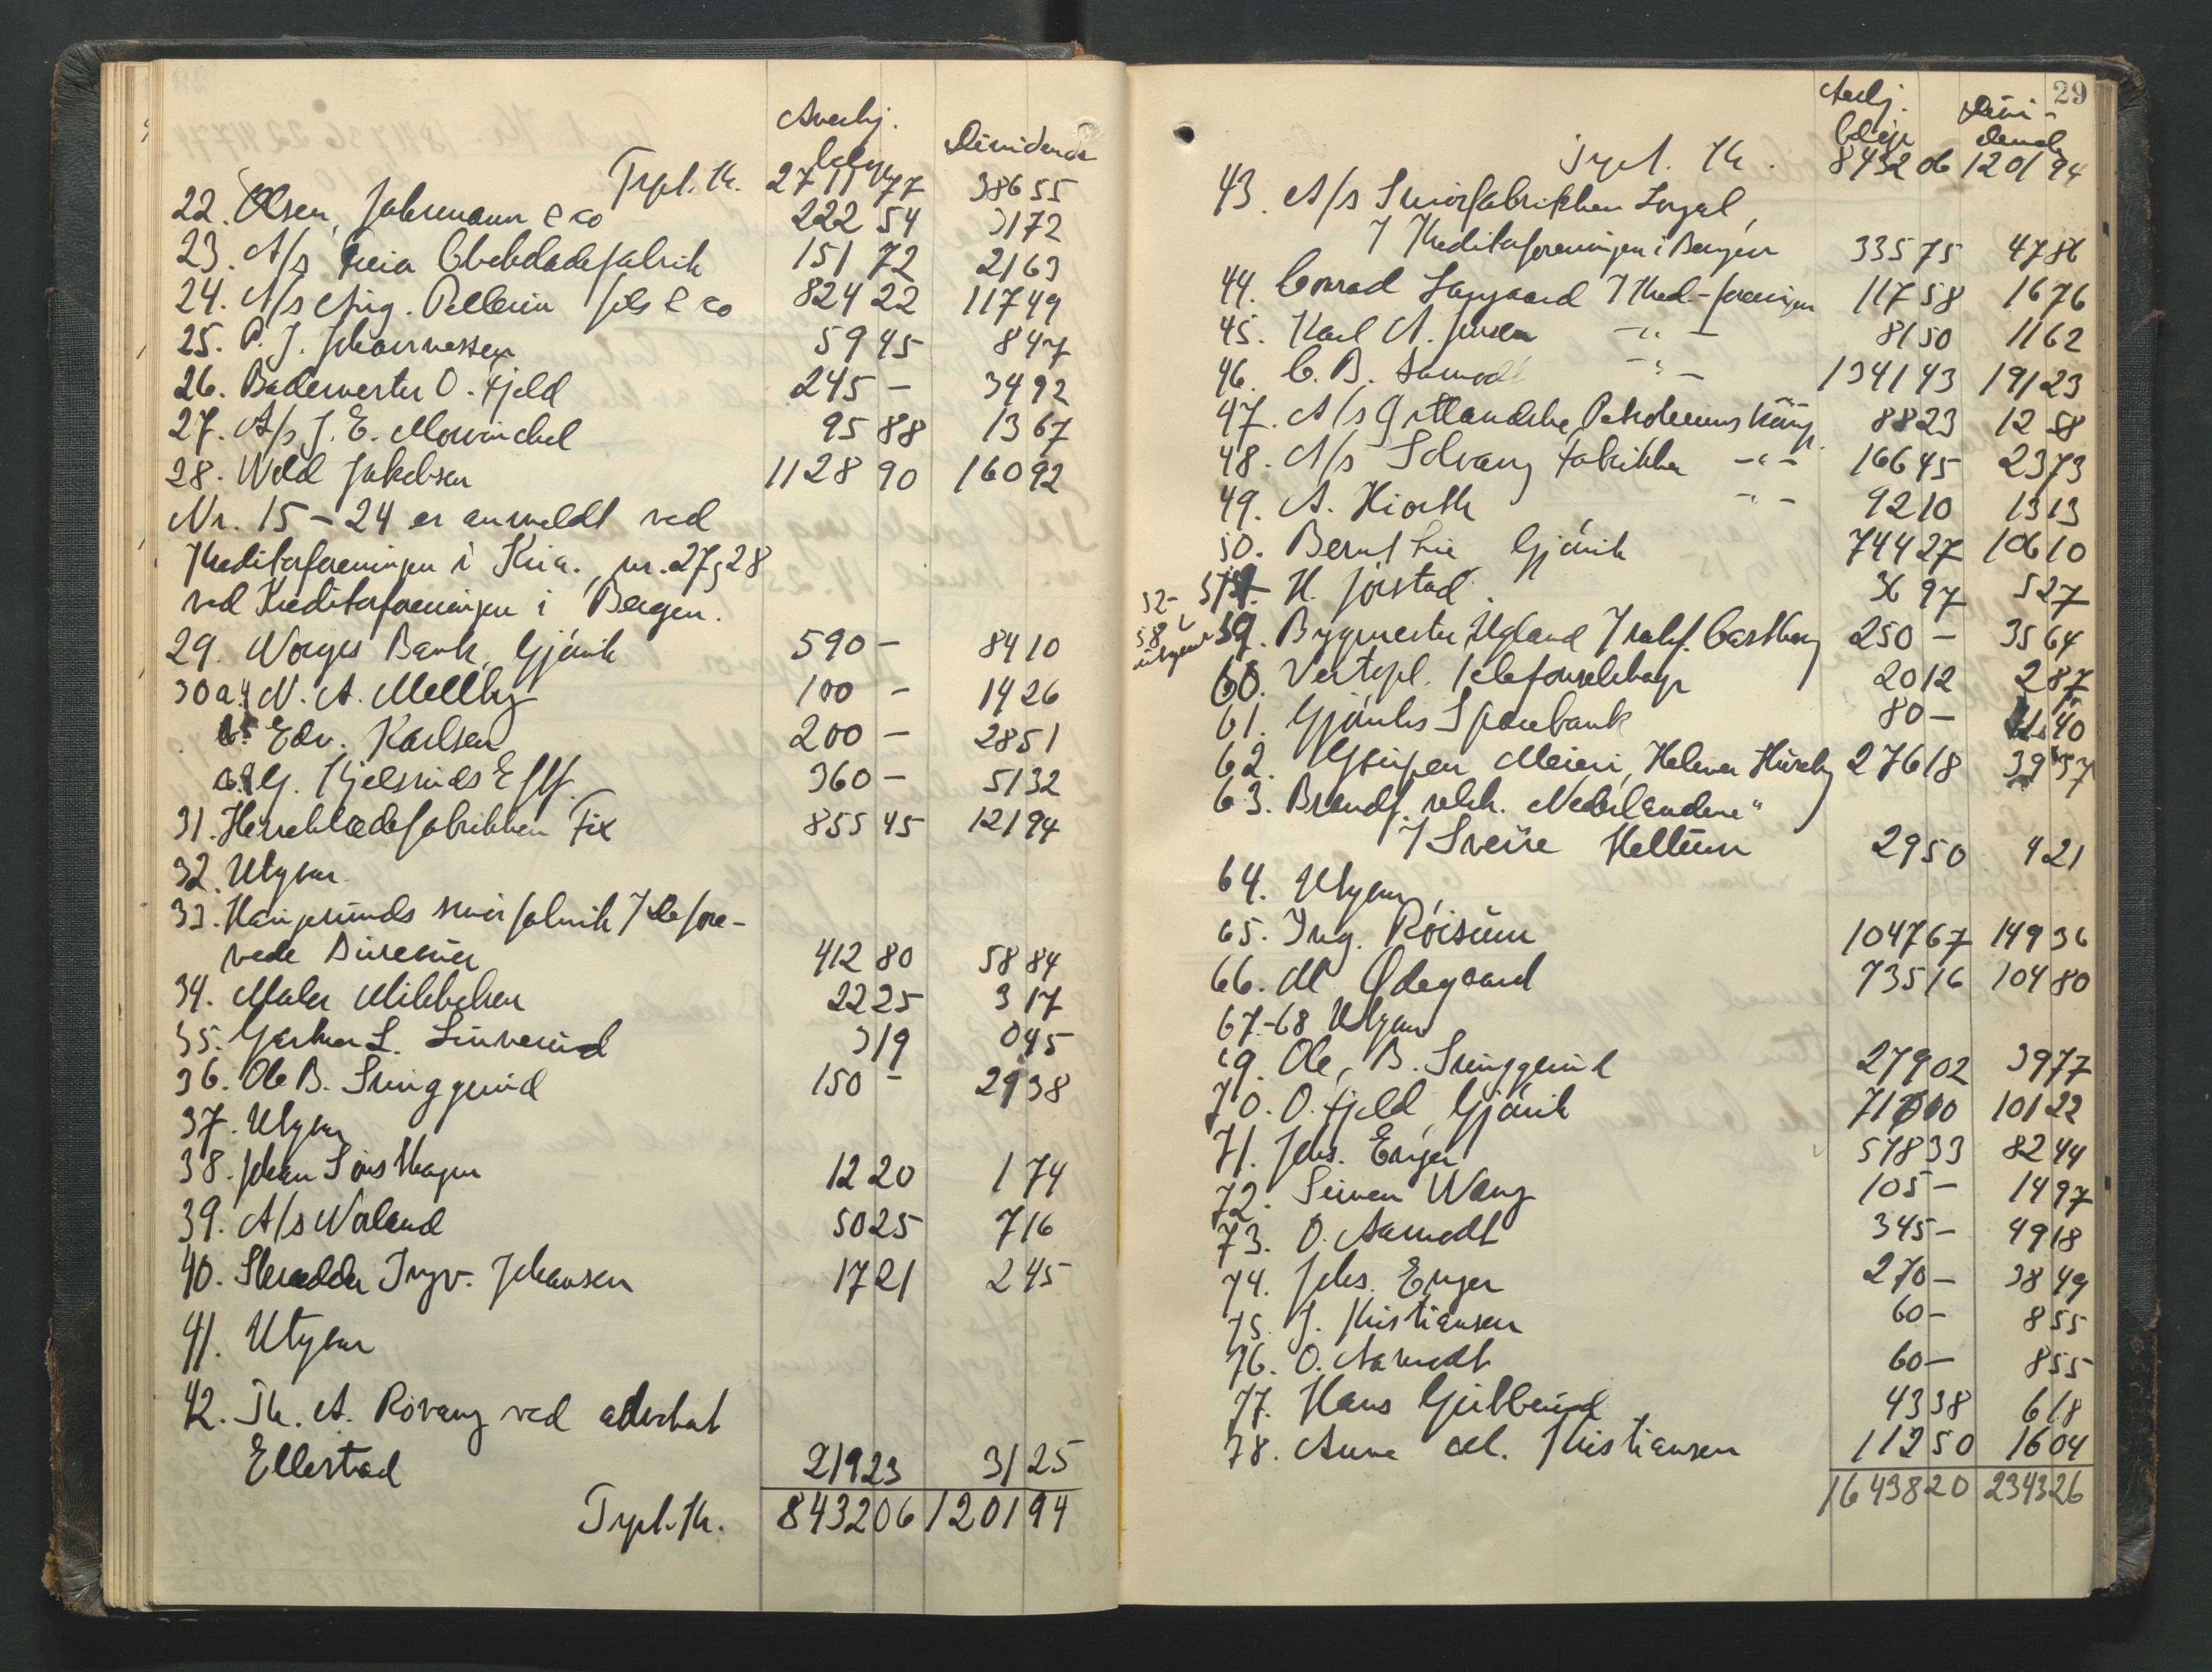 Anerkj. beløp Dividende
Trpt. Kr. 2711 77 386 55
22. Olsen, Jahrmann & Co 222 54 31 72
23. A/s Freia Chokoladefabrik 151 72 21 63
24. A/s Aug. Pellerin fils & Co 824 22 117 49
25. P. J. Johannessen 59 45 8 47
26. Bademester O. Fjeld 245 - 34 92
27. A/s J. E. Mowinckel 95 88 13 67
28. Wold Jakobsen 1128 90 160 92
Nr. 15 - 24 er anmeldt ved
Kreditorforeningen i Kria., nr. 27 & 28
ved Kreditorforeningen i Bergen.
29. Norges Bank, Gjövik 590 - 84 10
30 a. N. A. Mellby 100 - 14 26
b. Edv. Karlsen 200 - 28 51
c. G. Kjelsruds Eftf. 360 - 51 32
31. Herreklædefabrikken Fix 855 45 121 94
32. Utgaar
33. Haugerunds smörfabrik
412 80 58 84
34. Maler Mikkelsen 22 25 3 17
35. Gartner L. Linnerud 3 19 0 45
36. Ole B. Sminggerud 150 - 21 38
37. Utgaar
38. Johan Sörs Hagen 12 20 1 74
39. A/s Norland 50 25 7 16
40. Skrædder Ingv. Johansen 17 21 2 45
41. Utgaar
42. Th. A. Rövang ved advokat
Ellestad 219 23 31 25
Trpt. Kr. 8432 06 1201 94
29
Anerkj. beløp Divi-dende
Trpt. Kr. 8432 06 1201 94
43. A/s Smörfabrikken Loyal,
/ Kreditorforeningen i Bergen 335 75 47 86
44. Conrad Langaard / Kred.-foreningen 117 58 16 76
45. Karl A. Jensen -"- 81 50 11 62
46. C. B. Aamodt -"- 1341 43 191 23
47. A/s Östlandske Petroleumskomp. 88 23 12 58
48. A/s Solvang Fabrikker -"- 166 45 23 73
49. A. Hiorth -"- 92 10 13 13
50. Bernt Lie Gjövik 744 27 106 10
51. H. Jörstad. 36 97 5 27
52-58 utgaar
59. Bygmester Ugland / sakf. Castberg 250 - 35 64
60. Vestopl. Telefonselskap 20 12 2 87
61. Gjöviks Sparebank 80 - 11 40
62. Meieri, Helmer Huseby 276 18 39 37
63. Brandf. selsk. "Nederlandene"
/ Sverre Keltum 29 50 4 21
64. Utgaar,
65. Ing. Röisum 1047 67 149 36
66. M. Ödegaard 735 16 104 80
67-68 Utgaar
69. Ole B. Sminggerud 279 02 39 77
70. O. Fjeld, Gjövik 710 00 101 22
71. Johs. Enger 578 33 82 44
72. Simen Wang 105 - 14 97
73. O. Aamodt 345 - 49 18
74. Johs. Enger 270 - 38 49
75. J. Kristiansen 60 - 8 55
76. O. Aamodt 60 - 8 55
77. Hans Gulbrand 43 38 6 18
78. Anna Kristiansen 112 50 16 04
16438 20 2343 26